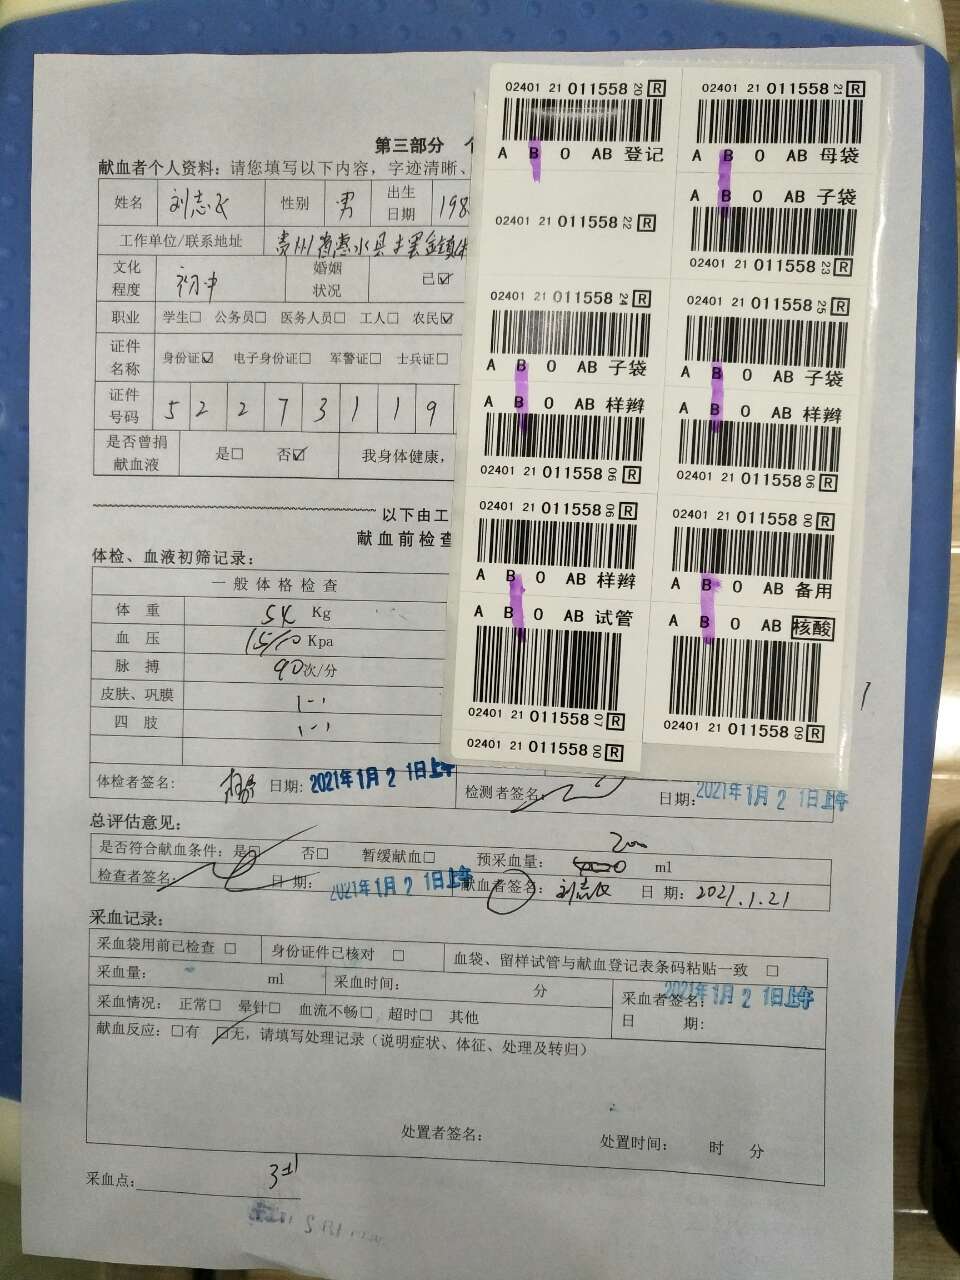 第三部分
献血者个人资料：请您填写以下内容，字迹清晰、
姓名 刘志 性别 男 出生日期 198
工作单位/联系地址 贵州省惠水县
文化程度 初中 婚姻状况 已☑
职业 学生□ 公务员□ 医务人员□ 工人□ 农民☑
证件名称 身份证☑ 电子身份证□ 军警证□ 士兵证□
证件号码 5 2 2 7 3 1 1 9
是否曾捐献血液 是□ 否☑ 我身体健康，
以下由工
献血前检查
体检、血液初筛记录：
一般体格检查
体重 Kg
血压 15/10 Kpa
脉搏 90次/分
皮肤、巩膜
四肢
体检者签名： 日期: 2021年1月21日上午 检测者签名： 日期: 2021年1月21日上午
总评估意见：
是否符合献血条件：是□ 否□ 暂缓献血□ 预采血量： 200 ml
检查者签名： 日期： 2021年1月21日上午 献血者签名： 刘志 日期：2021.1.21
采血记录：
采血袋用前已检查 □ 身份证件已核对 □ 血袋、留样试管与献血登记表条码粘贴一致 □
采血量： ml 采血时间： 分 采血者签名： 2021年1月21日上午
日 期：
采血情况： 正常□ 晕针□ 血流不畅□ 超时□ 其他
献血反应：□有 ☑无，请填写处理记录（说明症状、体征、处理及转归）
处置者签名： 处置时间： 时 分
采血点：
02401 21 011558 20 R
A B O AB 登记
02401 21 011558 21 R
A B O AB 母袋
02401 21 011558 22 R
A B O AB 子袋
02401 21 011558 23 R
02401 21 011558 24 R
A B O AB 子袋
02401 21 011558 25 R
A B O AB 子袋
A B O AB 样辫
02401 21 011558 06 R
A B O AB 样辫
02401 21 011558 06 R
02401 21 011558 06 R
A B O AB 样辫
02401 21 011558 00 R
A B O AB 备用
A B O AB 试管
02401 21 011558 07 R
A B O AB 核酸
02401 21 011558 09 R
02401 21 011558 00 R